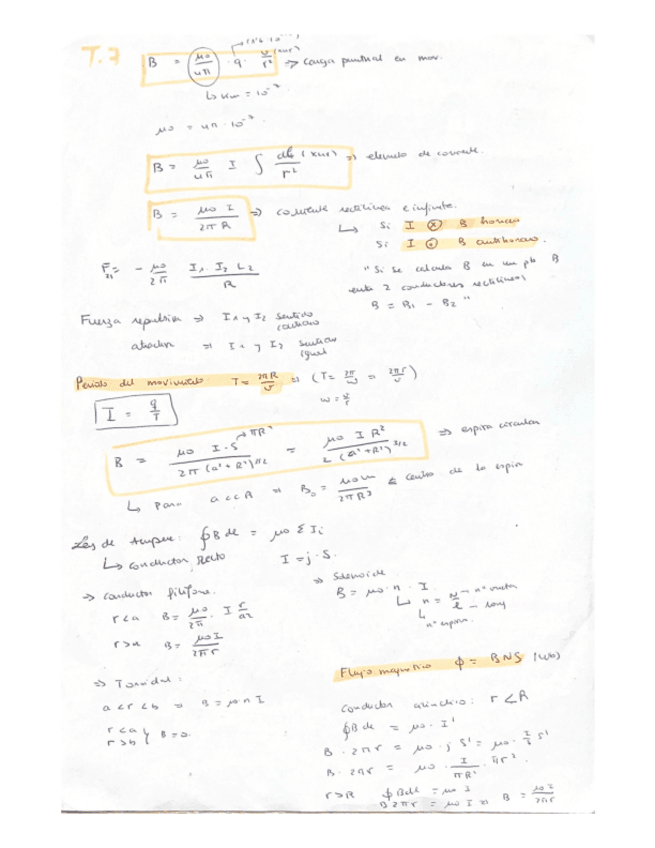 T.7
B = μ₀/4π · q · v (xur)/r² => Carga puntual en mov.
↳ Km = 10⁻⁷
μ₀ = 4π · 10⁻⁷
B = μ₀/4π I ∫ dl (xur)/r² => elemento de corriente.
B = μ₀ I/2πR => corriente rectilínea e infinita.
↳ Si I ⊗ B horario
Si I ⊙ B antihorario.
F₂₁ = - μ₀/2π I₁·I₂ L₂/R
"Si se calcula B en un pto B
entre 2 conductores rectilíneos
B = B₁ - B₂"
Fuerza repulsiva => I₁ y I₂ sentido contrario
atracción => I₁ y I₂ sentido igual
Periodo del movimiento T = 2πR/v => (T = 2π/ω = 2πr/v)
ω = v/r
I = q/T
B = μ₀ I·S/2π(a²+R²)^3/2 = μ₀ I R²/2(a²+R²)^3/2 => espira circular
πR²
↳ Para a<<R => B₀ = μ₀m/2πR³ Centro de la espira
Ley de Ampere: ∮B dl = μ₀ Σ Ii
↳ conductor Recto I = j · S.
=> conductor filiforme.
r<a B = μ₀/2π · I r/a²
r>a B = μ₀I/2πr
=> Solenoide
B = μ₀ · n · I
↳ n = N/l - nº vueltas - long
nº espiras
=> Toroidal:
a<r<b => B = μ₀ n I
r<a
r>b } B = 0
Flujo magnético φ = BNS (Wb)
Conductor cilíndrico: r<R
∮B dl = μ₀ · I'
B · 2πr = μ₀ · j S' = μ₀ · I/S S'
B · 2πr = μ₀ · I/πR² · πr².
r>R ∮B dl = μ₀ I
B 2πr = μ₀ I => B = μ₀I/2πr